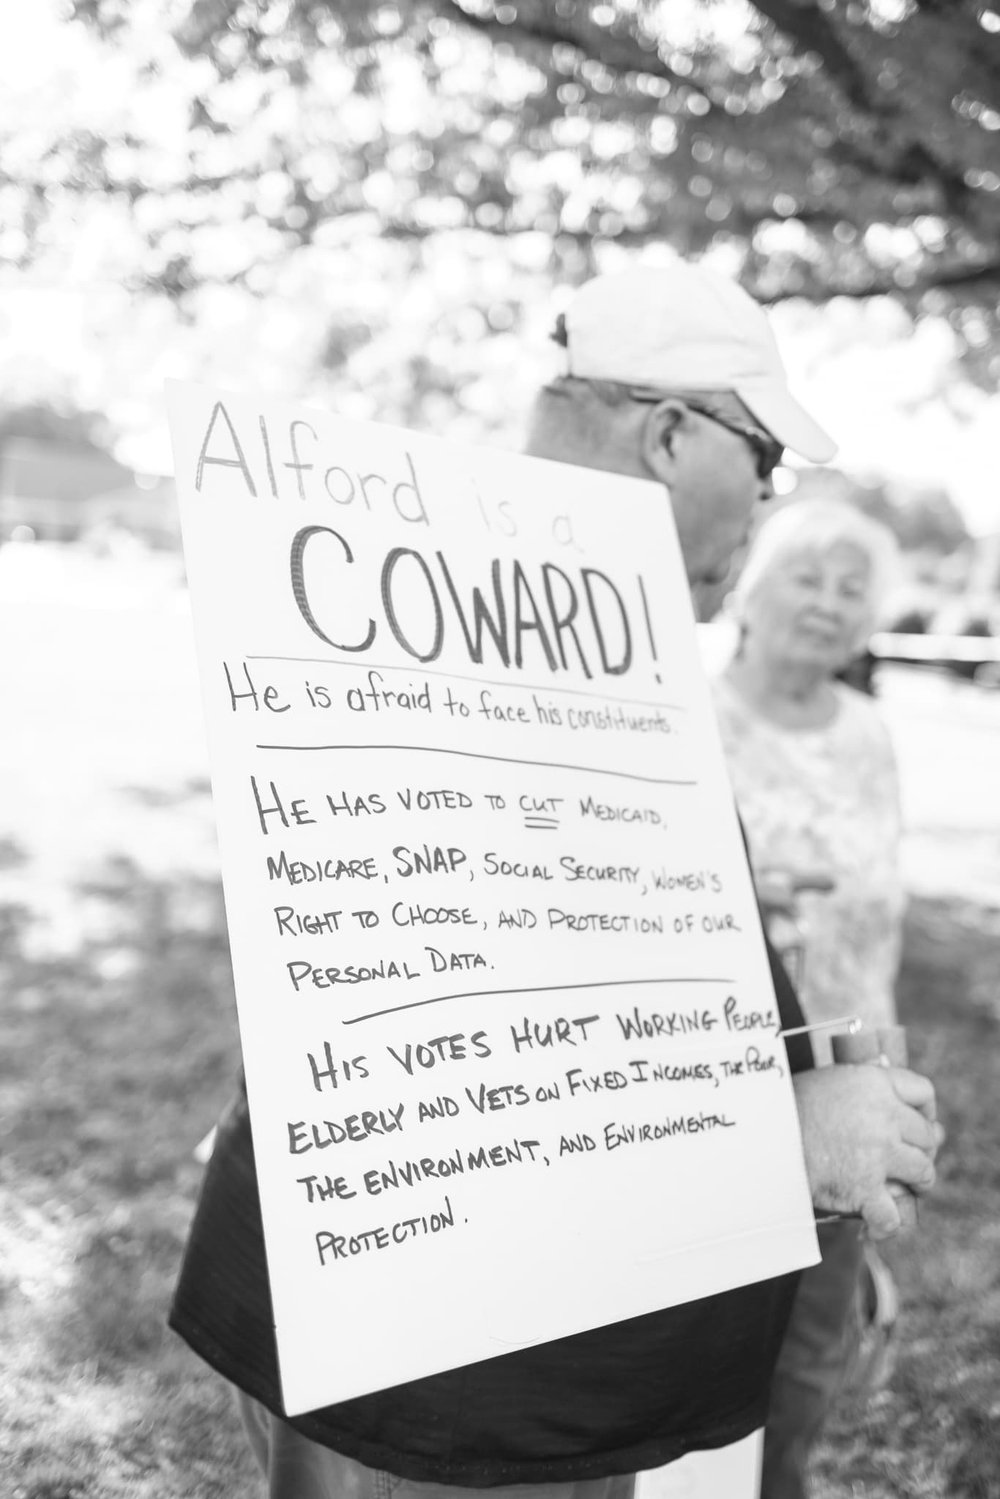 Alford is a
COWARD!
He is afraid to face his constituents.
HE HAS VOTED TO CUT MEDICAID,
MEDICARE, SNAP, SOCIAL SECURITY, WOMEN'S
RIGHT TO CHOOSE, AND PROTECTION OF OUR
PERSONAL DATA.
HIS VOTES HURT WORKING PEOPLE,
ELDERLY AND VETS ON FIXED INCOMES, THE POOR,
THE ENVIRONMENT, AND ENVIRONMENTAL
PROTECTION.